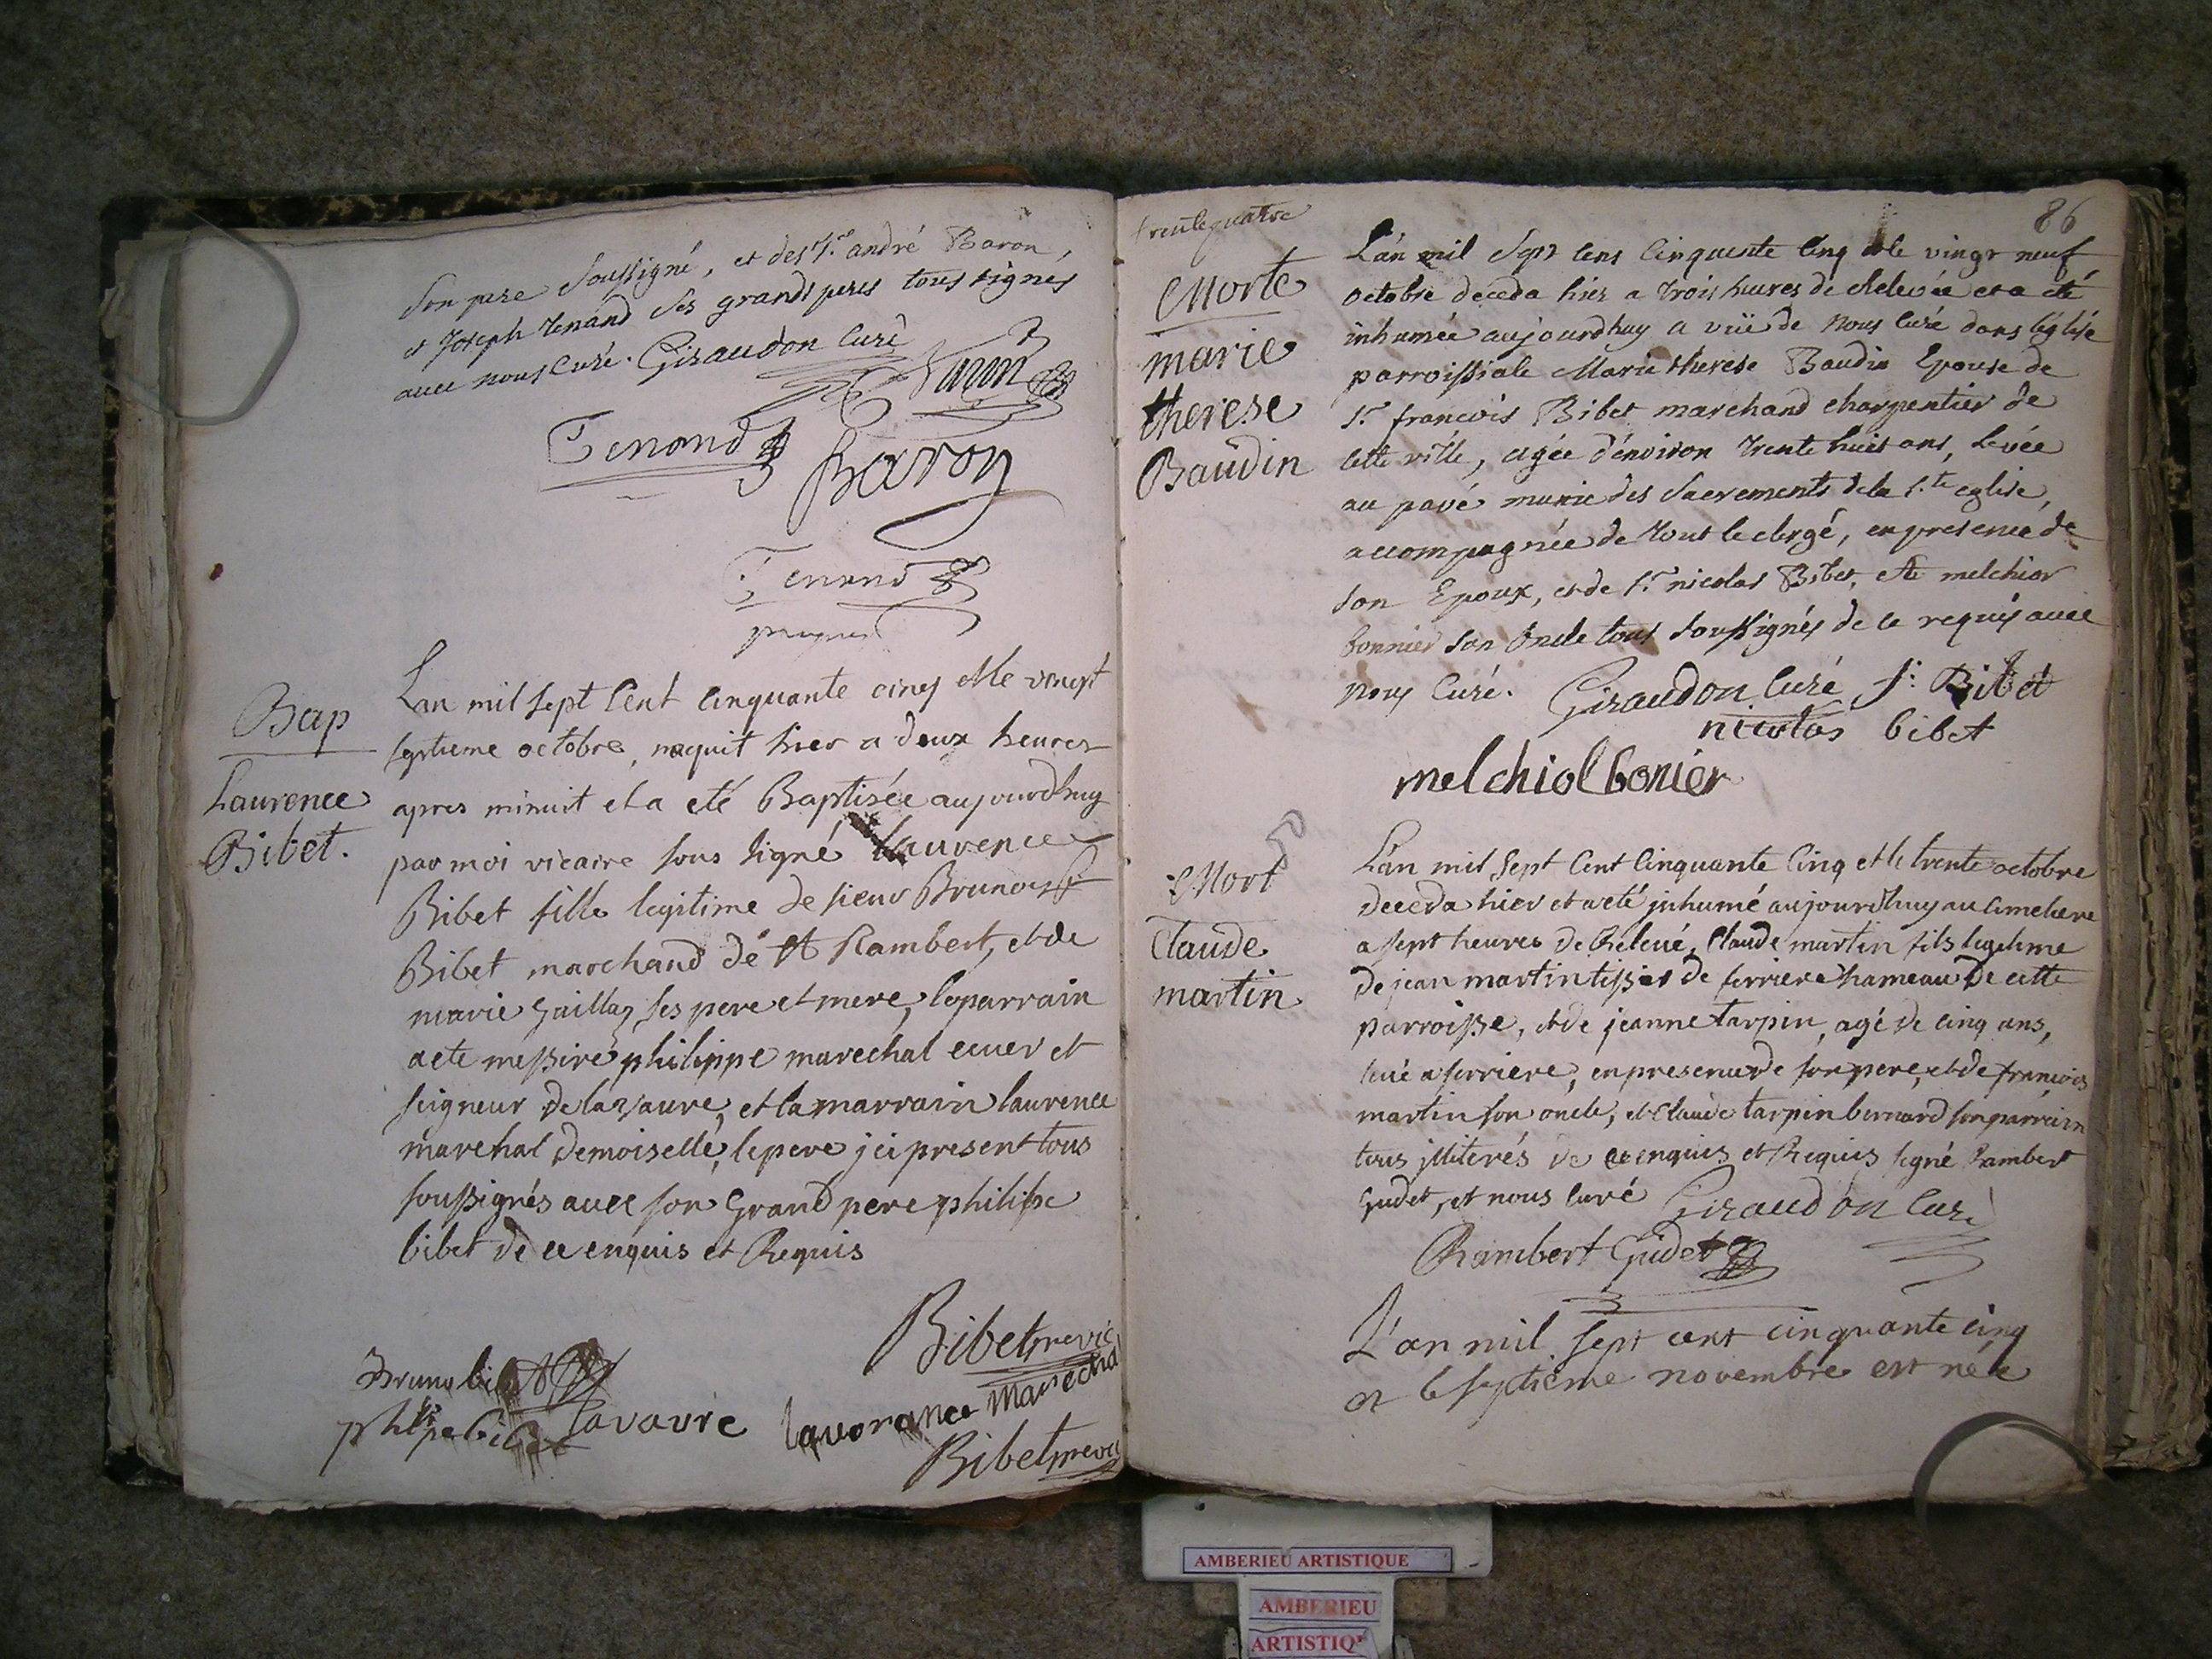 son pere soussigné, et des Sr. andré Baron,
et Joseph Tenánd ses grands peres tous signés
avec nous Curé. Giraudon Curé
Tenand
Baron
Tenand
Bap
Laurence
Bibet.
Lan mil sept Cent Cinquante cinq et le vingt
septieme octobre, naquit hier a deux heures
apres minuit et a eté Baptisée aujourdhuy
par moi vicaire sous signé laurence
Bibet fille legitime de sieur Brunois
Bibet marchand de st Rambert, et de
marie Gaillaz ses pere et mere, le parrain
a ete messire philippe marechal ecuier et
seigneur de lavavre, et la marrain laurence
marehal demoiselle, le pere ici present tous
soussignés avec son Grand pere philippe
bibet de ce enquis et Requis
Bruno bibet
philipe bibet
lavavre
lauorance marechal
Bibet
Bibet
trente quatre
86
Morte
marie
therese
Baudin
L'an mil Sept Cens Cinquente Cinq et le vingt neuf
octobre deceda hier a trois heures de Relevée et a eté
inhumée aujourdhuy a vüe de Nous Curé dans léglise
parroissiale Marie therese Baudin Epouse de
Sr. francois Bibet marchand charpentier de
cette ville, agée d'énviron trente huit ans, Levée
au pavé munie des Sacrements de la Ste. eglise,
accompagnée de tout le clergé, en presence de
son Epoux, et de Sr. nicolas Bibet, et de melchior
bonnier son Oncle tous soussignés de ce requis avec
nous Curé. Giraudon Curé f. Bibet
nicolas bibet
melchiol bonier
Mort
Claude
martin
L'an mil Sept Cent Cinquante Cinq et le trente octobre
deceda hier et a eté inhumé aujourdhuy au Cimetiere
a sept heures de Relevé, Claude martin fils legitime
de jean martin tissier de serriere hameau de cette
parroisse, et de jeanne tarpin, agé de cinq ans,
levé a serriere, en presence de son pere, et de françois
martin son oncle, et claude tarpin bernard son parrain
tous illiterés de ce enquis et Requis signé Rambert
Gudet, et nous Curé Giraudon Curé
Rambert Gudet
L'an mil sept cent cinquante cinq
et le septieme novembre est née
AMBERIEU ARTISTIQUE
AMBERIEU
ARTISTIQ